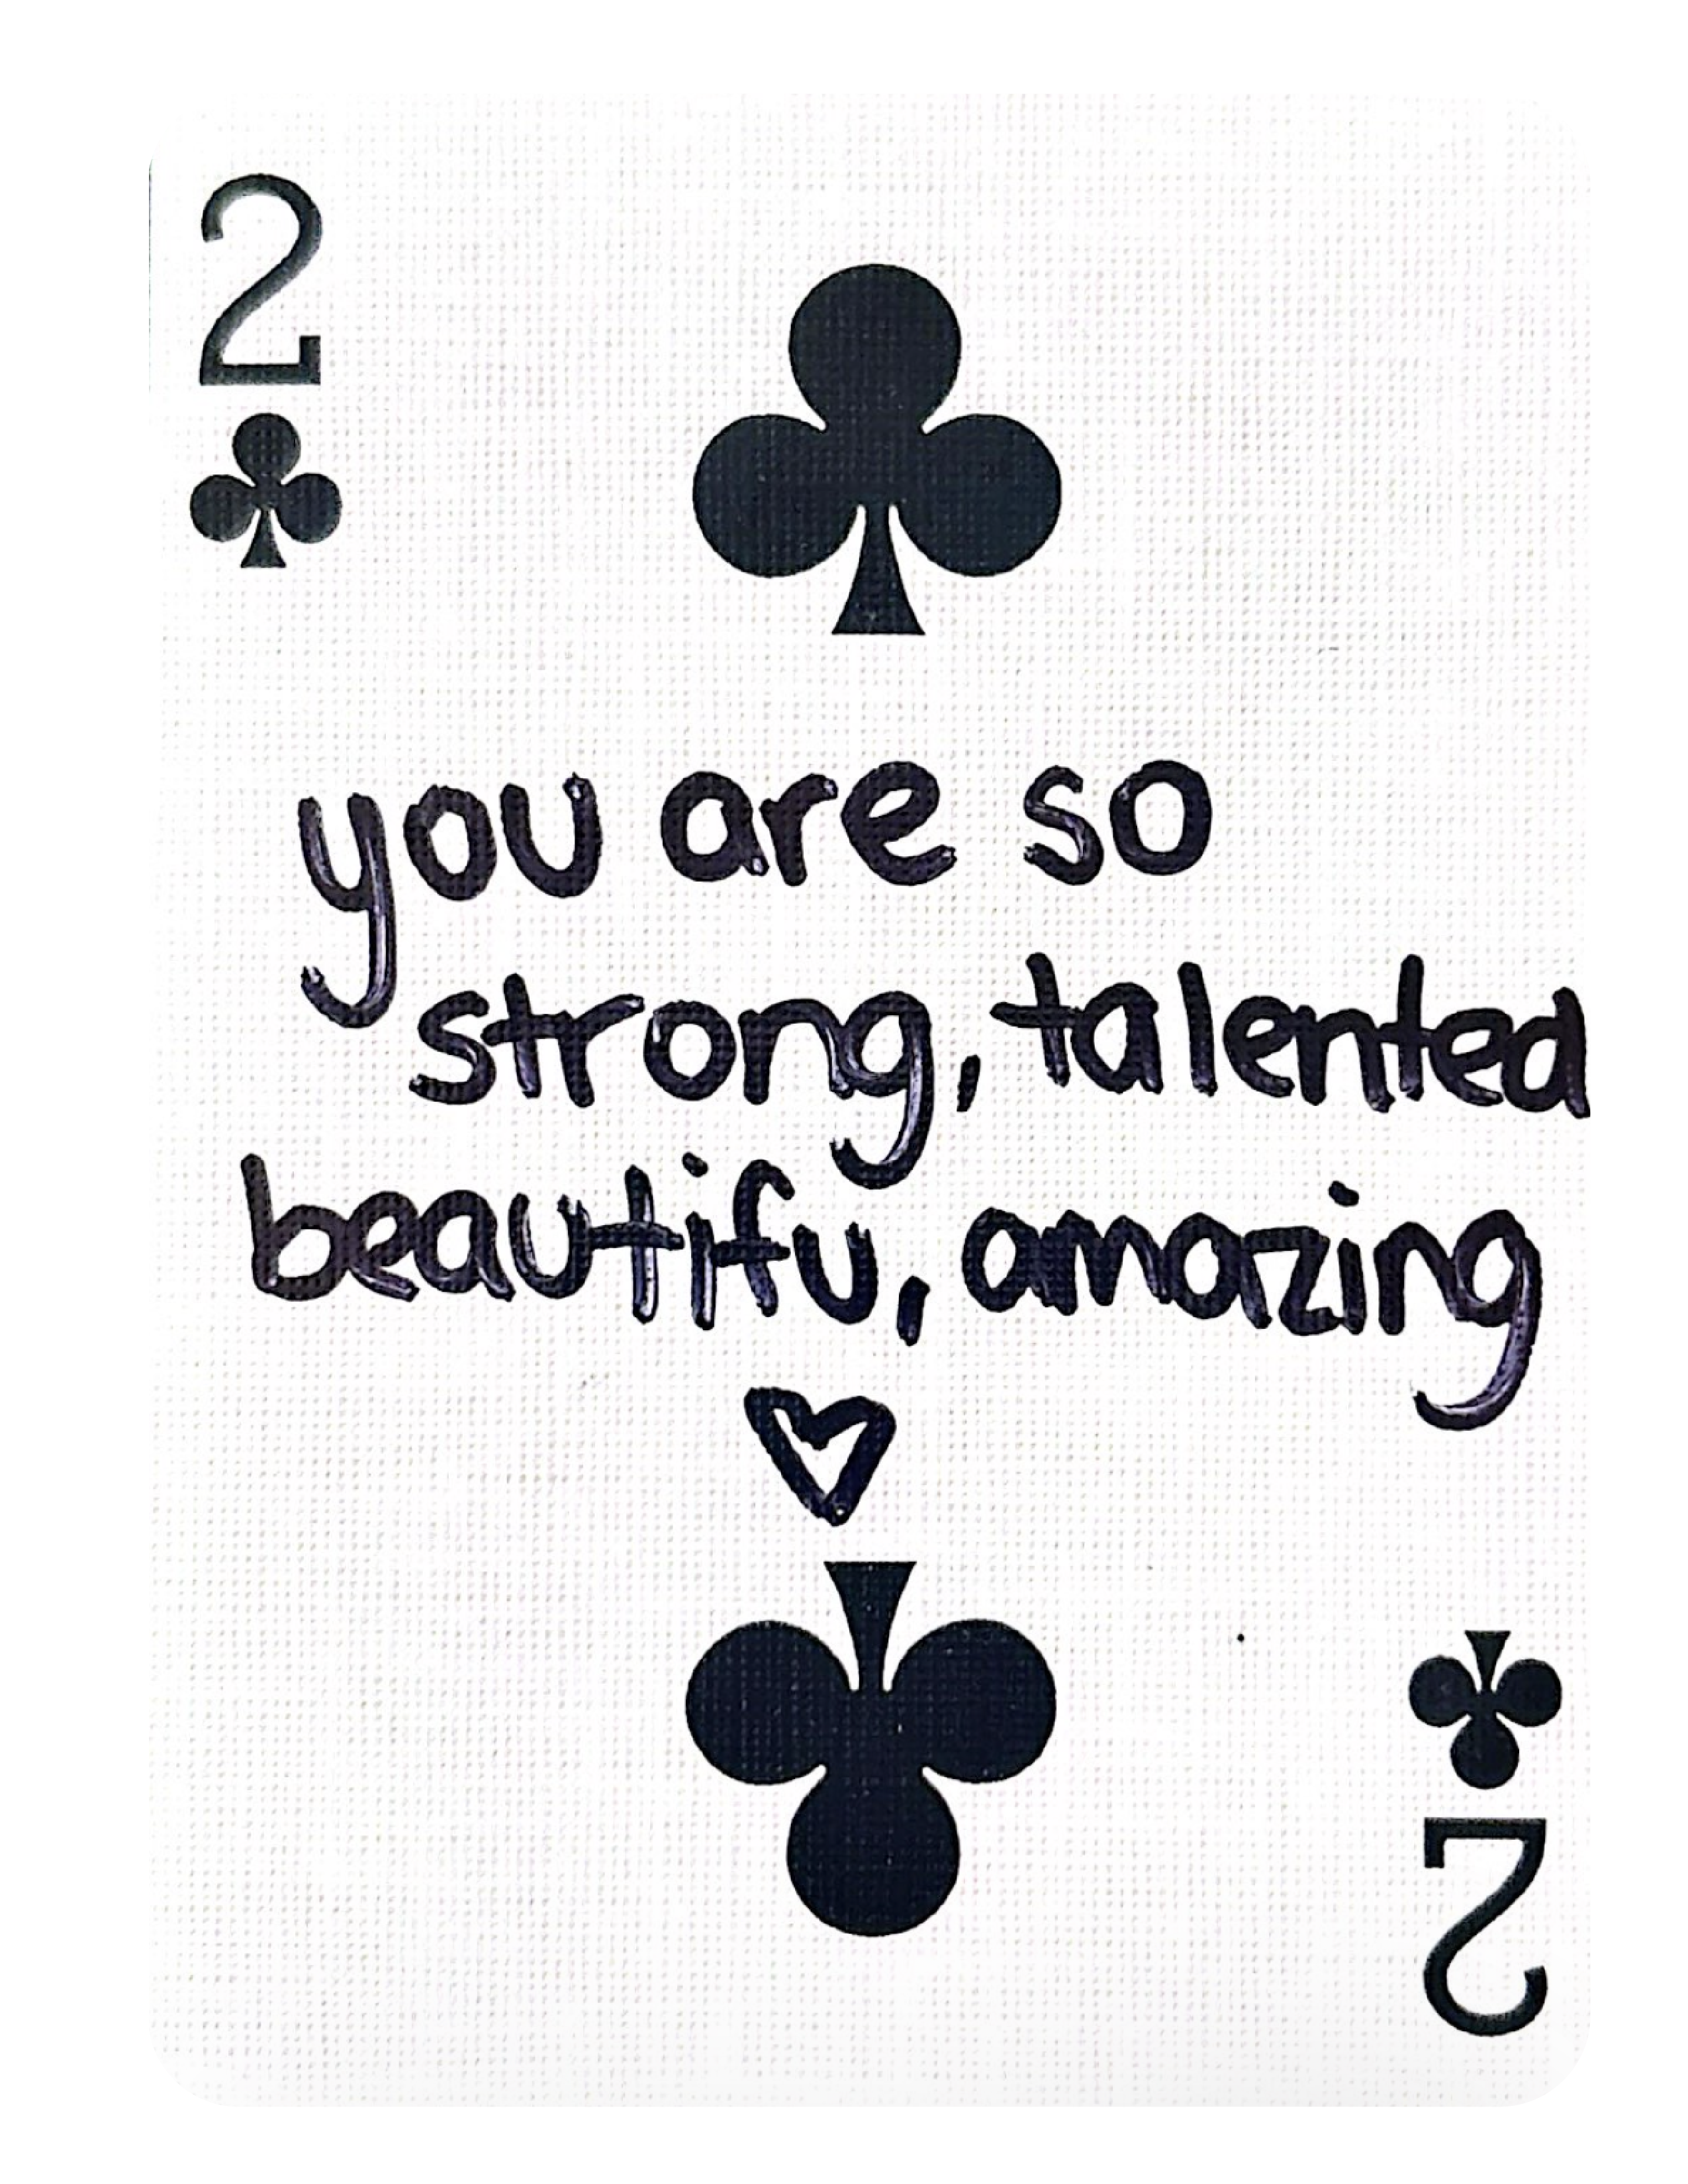 2
you are so
strong, talented
beautifu, amazing
2